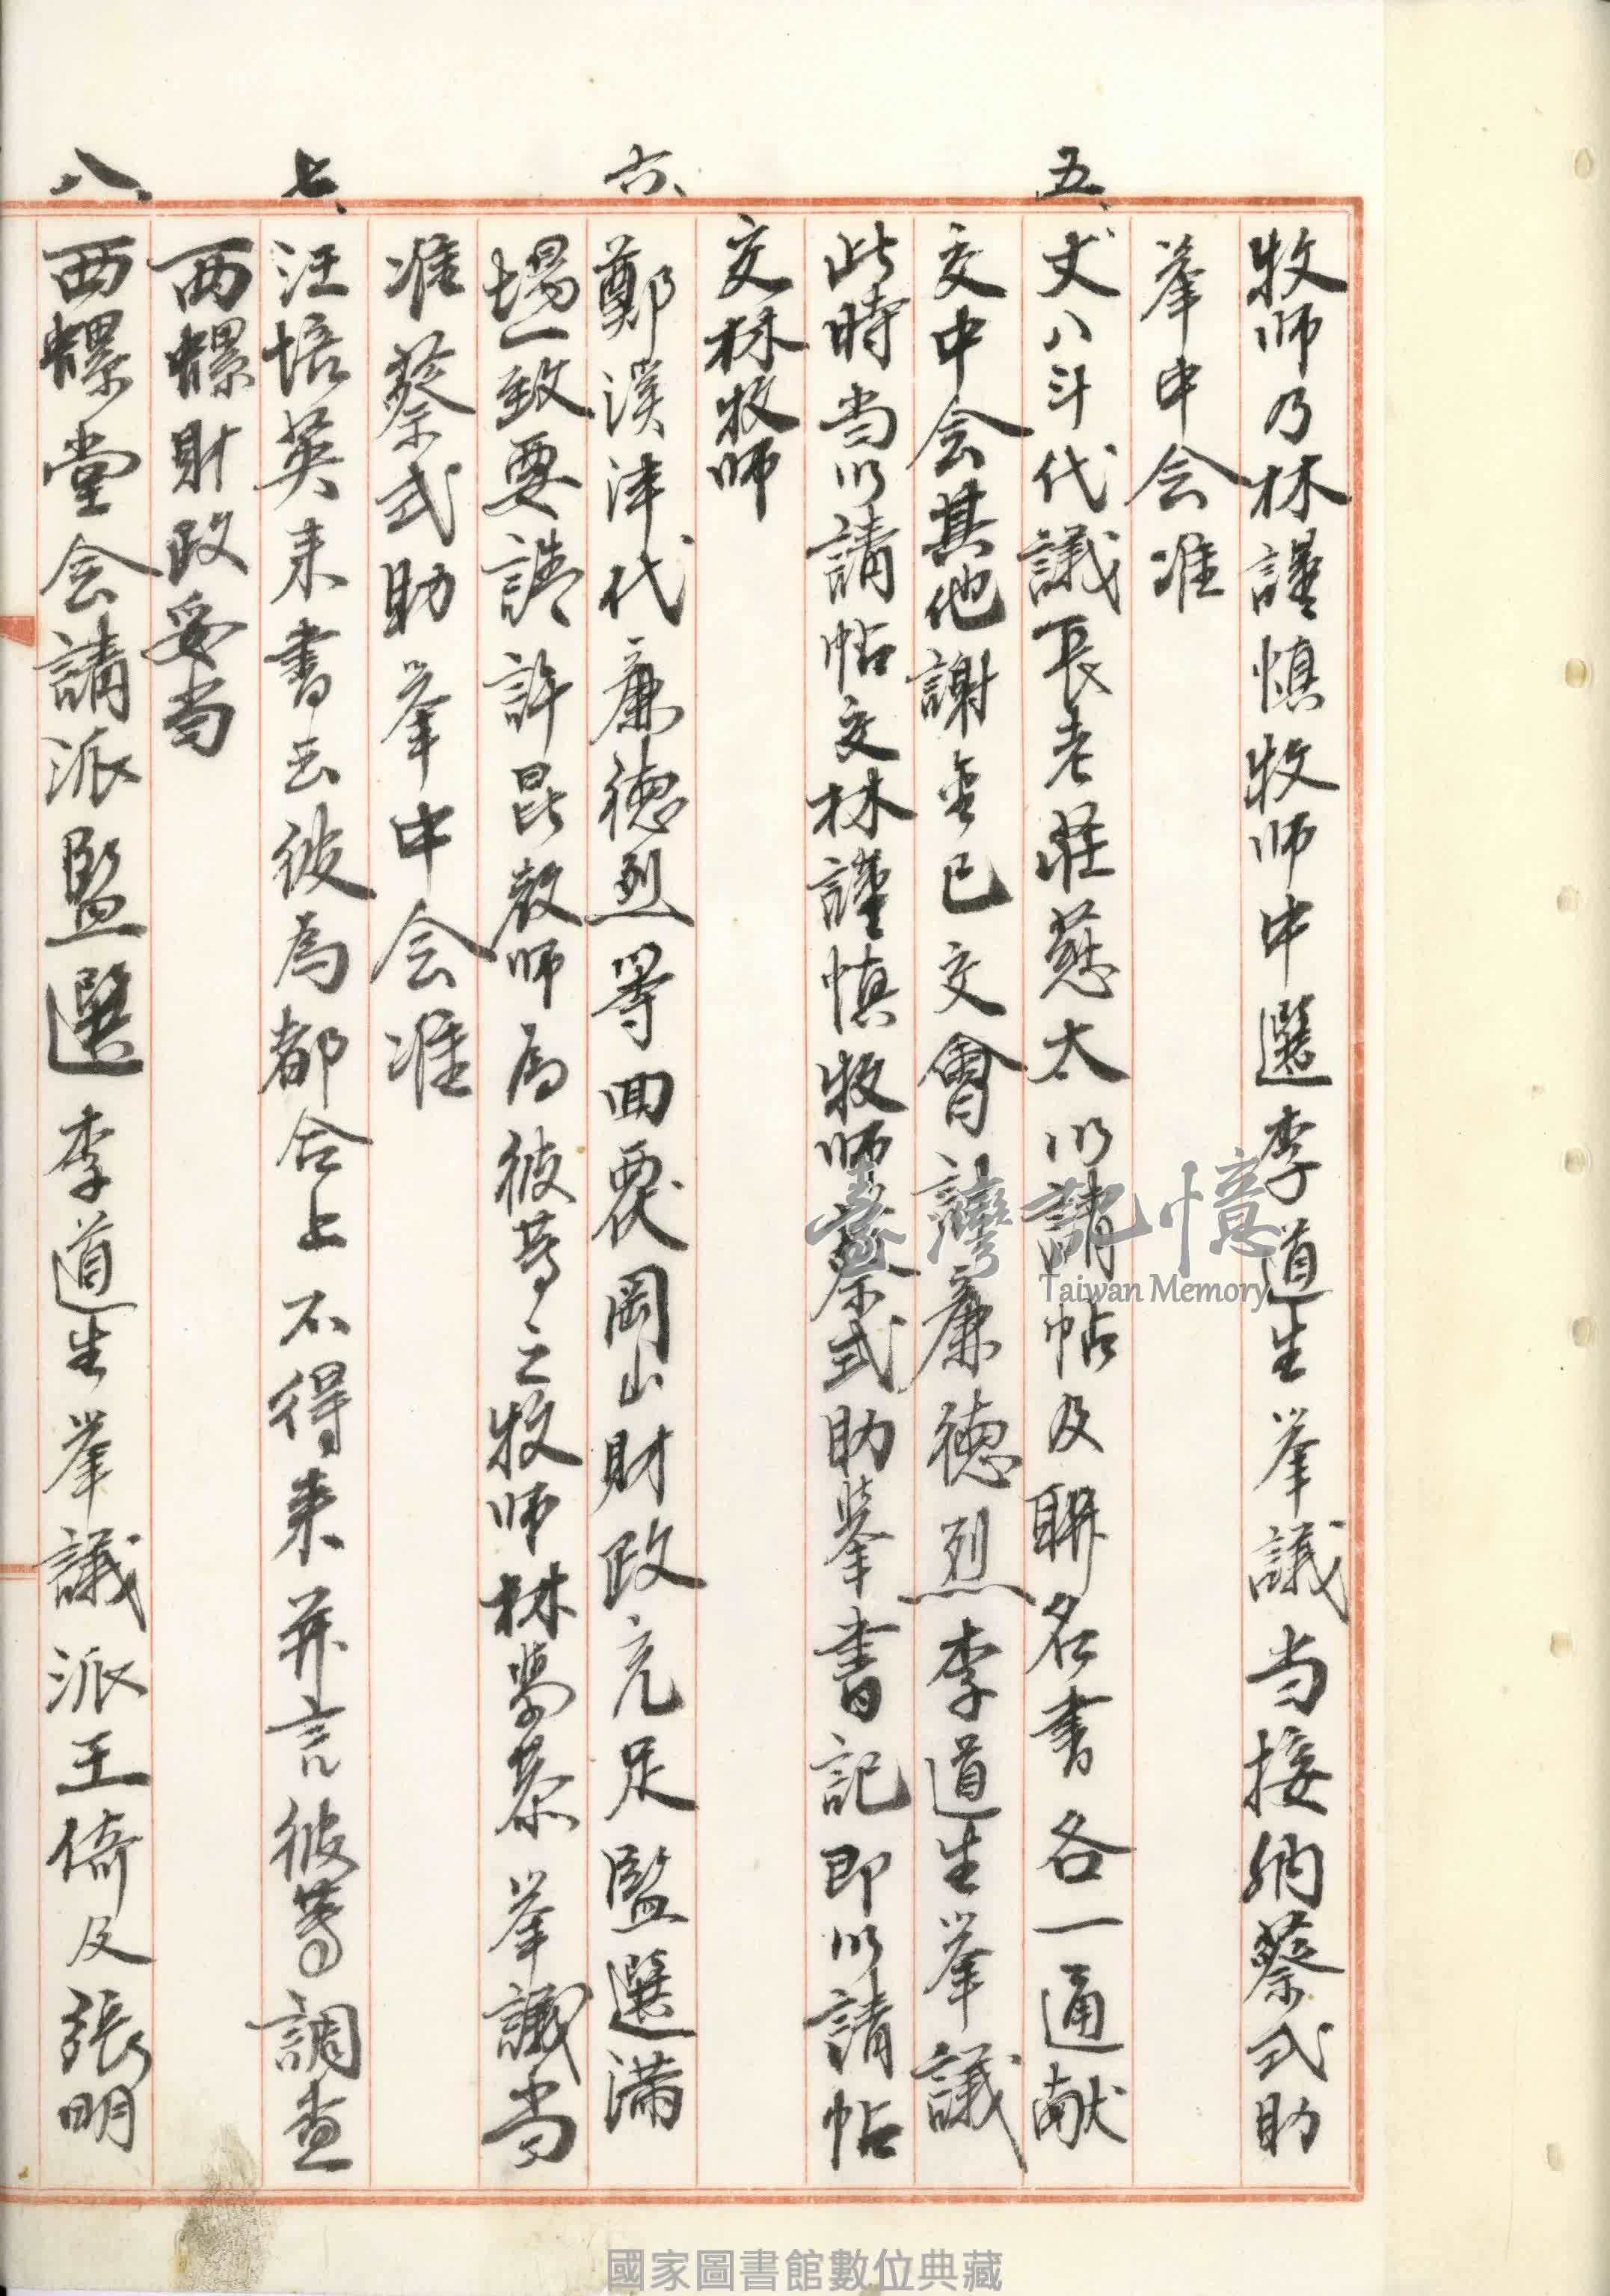 牧师乃林謹慎牧师中選李道生举議当接納蔡式助
举中会准
五、丈八斗代議長老莊慈太以請帖及聯名書各一通献
交中会其他謝金已交會計廉德烈李道生举議
此時当以請帖交林謹慎牧师蔡式助举書記即以請帖
交林牧师
六、鄭溪津代廉德烈等回覆岡山財政充足監選滿
場一致要請許昆教师為彼等之牧师林學恭举議当
准蔡式助举中会准
七、汪培英来書云彼為都合上不得来并言彼等調查
西螺財政妥当
八、西螺堂会請派監選李道生举議派王倚及張明
臺灣記憶
Taiwan Memory
國家圖書館數位典藏